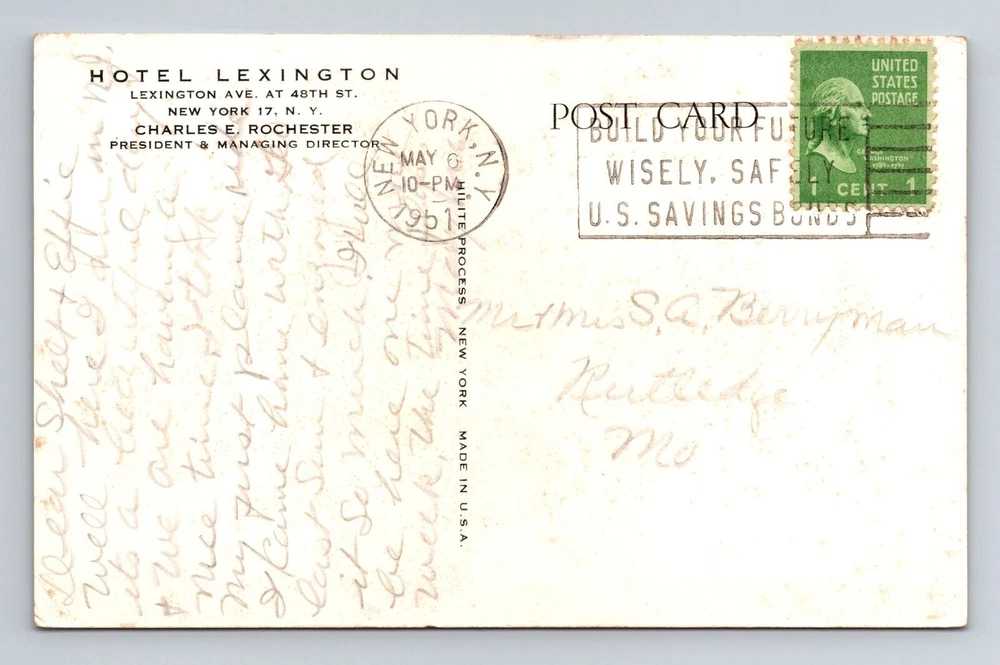 HOTEL LEXINGTON
LEXINGTON AVE. AT 48TH ST.
NEW YORK 17, N. Y.
CHARLES E. ROCHESTER
PRESIDENT & MANAGING DIRECTOR
POST CARD
NEW YORK, N.Y.
MAY 6
10-PM
1951
BUILD YOUR FUTURE
WISELY, SAFELY
U.S. SAVINGS BONDS
UNITED
STATES
POSTAGE
GEORGE
WASHINGTON
1789-1797
1 CENT 1
HILITE PROCESS NEW YORK MADE IN U.S.A.
Mr + Mrs S. A. Berryman
Rutledge
Mo
Dear Shelt + Effie
Well here I am in N.Y.
its a beautiful day
+ we are having a
nice time
My first plane ride
I came home with the
last Sun + enjoyed
it so much
be here one
week, the time